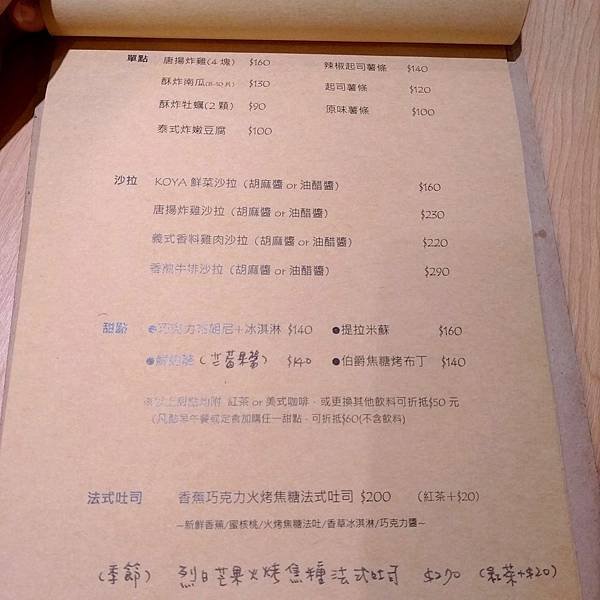 單點 唐揚炸雞(4塊) $160 辣椒起司薯條 $140
酥炸南瓜(8-10片) $130 起司薯條 $120
酥炸牡蠣(2顆) $90 原味薯條 $100
泰式炸嫩豆腐 $100
沙拉 KOYA 鮮菜沙拉(胡麻醬 or 油醋醬) $160
唐揚炸雞沙拉(胡麻醬 or 油醋醬) $230
義式香料雞肉沙拉(胡麻醬 or 油醋醬) $220
香煎牛排沙拉(胡麻醬 or 油醋醬) $290
甜點 ●巧克力布朗尼+冰淇淋 $140 ●提拉米蘇 $160
●鮮奶酪(芒菓果醬) $140 ●伯爵焦糖烤布丁 $140
※以上甜點均附 紅茶 or 美式咖啡,或更換其他飲料可折抵$50元
(凡點早午餐或定食加購任一甜點,可折抵$60(不含飲料)
法式吐司 香蕉巧克力火烤焦糖法式吐司 $200 (紅茶+$20)
~新鮮香蕉/蜜核桃/火烤焦糖法吐/香草冰淇淋/巧克力醬~
(季節) 烈日芒果火烤焦糖法式吐司 $270 (紅茶+$20)